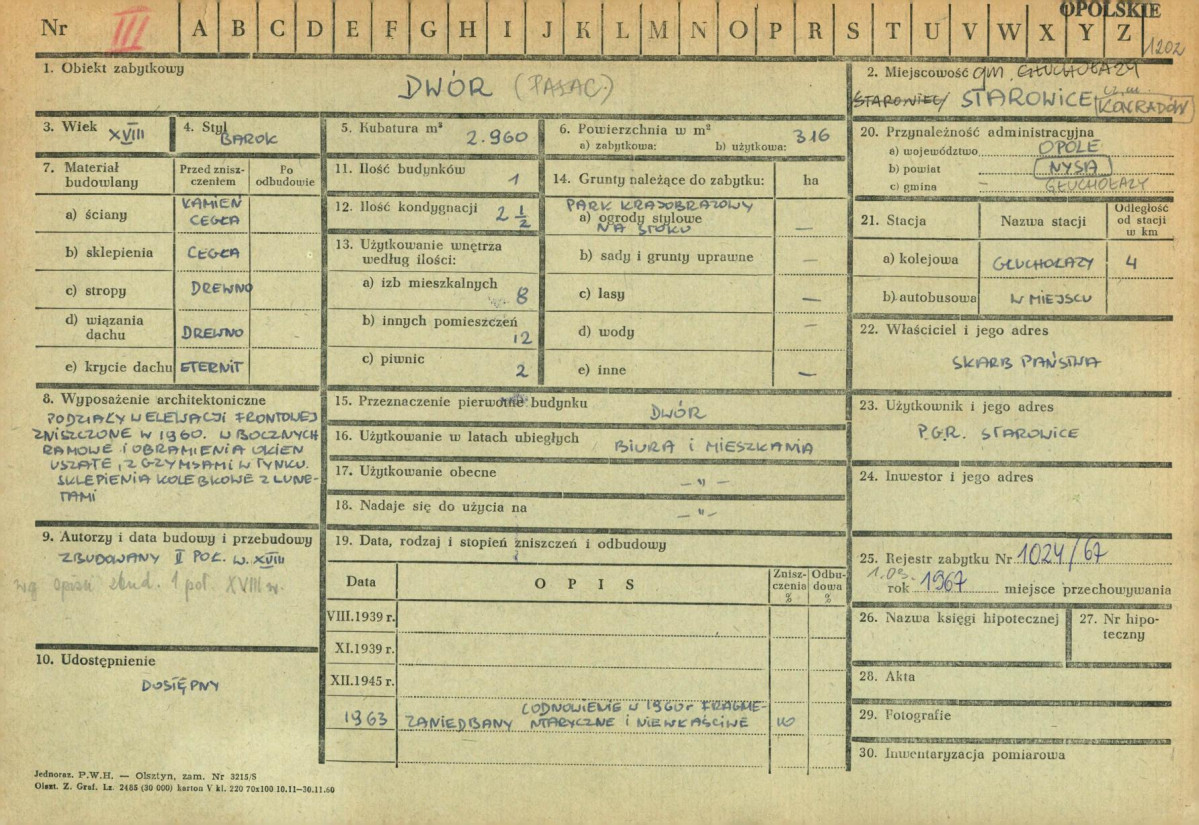 OPOLSKIE
Nr III A B C D E F G H I J K L M N O P R S T U V W X Y Z
1202
1. Obiekt zabytkowy
DWÓR (PAŁAC)
2. Miejscowość gm. GŁUCHOŁAZY
STAROWIEC/ STAROWICE
KONRADÓW
3. Wiek XVIII
4. Styl BAROK
5. Kubatura m³ 2.960
6. Powierzchnia w m²
a) zabytkowa: b) użytkowa: 316
7. Materiał budowlany
Przed zniszczeniem
Po odbudowie
a) ściany KAMIEŃ CEGŁA
b) sklepienia CEGŁA
c) stropy DREWNO
d) wiązania dachu DREWNO
e) krycie dachu ETERNIT
8. Wyposażenie architektoniczne
PODZIAŁY W ELEWACJI FRONTOWEJ
ZNISZCZONE W 1960. W BOCZNYCH
RAMOWE I OBRAMIENIA OKIEN
USZATE, Z GZYMSAMI W TYNKU.
SKLEPIENIA KOLEBKOWE Z LUNE-
TAMI
9. Autorzy i data budowy i przebudowy
ZBUDOWANY II POŁ. W. XVIII
wg opisu zbud. 1 poł. XVIII w.
10. Udostępnienie
DOSTĘPNY
11. Ilość budynków 1
12. Ilość kondygnacji 2 1/2
13. Użytkowanie wnętrza
według ilości:
a) izb mieszkalnych 8
b) innych pomieszczeń 12
c) piwnic 2
14. Grunty należące do zabytku: ha
PARK KRAJOBRAZOWY
a) ogrody stylowe —
NA STOKU
b) sady i grunty uprawne —
c) lasy —
d) wody —
e) inne —
15. Przeznaczenie pierwotne budynku
DWÓR
16. Użytkowanie w latach ubiegłych BIURA I MIESZKANIA
17. Użytkowanie obecne — " —
18. Nadaje się do użycia na — " —
19. Data, rodzaj i stopień zniszczeń i odbudowy
Data OPIS Zniszczenia % Odbudowa %
VIII.1939 r.
XI.1939 r.
XII.1945 r.
(ODNOWIENIE W 1960 r FRAGME-
1963 ZANIEDBANY NTARYCZNE I NIEWŁAŚCIWE 10
20. Przynależność administracyjna
a) województwo OPOLE
b) powiat NYSA
c) gmina GŁUCHOŁAZY
21. Stacja Nazwa stacji Odległość od stacji w km
a) kolejowa GŁUCHOŁAZY 4
b) autobusowa W MIEJSCU
22. Właściciel i jego adres
SKARB PAŃSTWA
23. Użytkownik i jego adres
P.G.R. STAROWICE
24. Inwestor i jego adres
25. Rejestr zabytku Nr 1024/67
1.03.
rok 1967 miejsce przechowywania
26. Nazwa księgi hipotecznej
27. Nr hipoteczny
28. Akta
29. Fotografie
30. Inwentaryzacja pomiarowa
Jednoraz. P.W.H. — Olsztyn, zam. Nr 3215/S
Olszt. Z. Graf. Lz. 2485 (30 000) karton V kl. 220 70x100 10.11—30.11.60